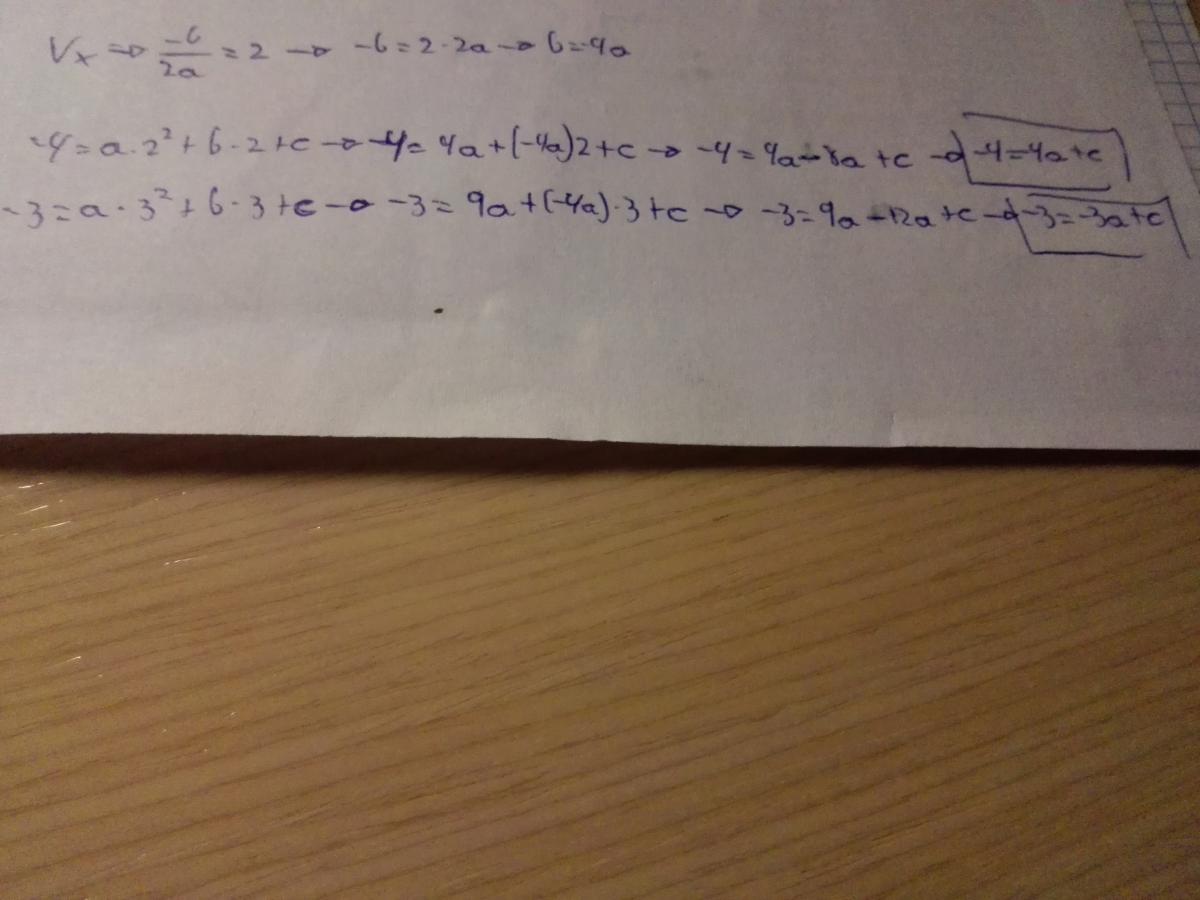 Vx ⇒ -b/2a = 2 → -b = 2·2a → b = -4a
-4 = a·2² + b·2 + c → -4 = 4a + (-4a)2 + c → -4 = 4a - 8a + c → -4 = 4a + c
-3 = a·3² + b·3 + c → -3 = 9a + (-4a)·3 + c → -3 = 9a - 12a + c → -3 = -3a + c